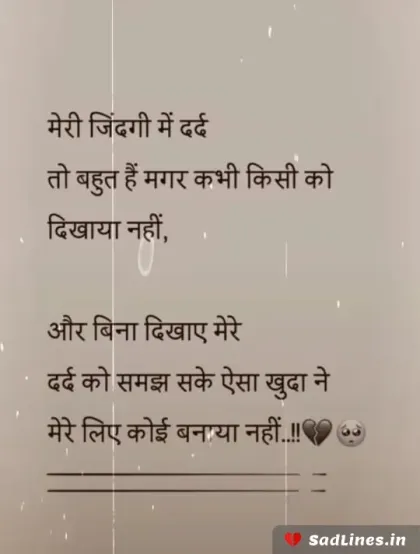 मेरी जिंदगी में दर्द
तो बहुत हैं मगर कभी किसी को
दिखाया नहीं,
और बिना दिखाए मेरे
दर्द को समझ सके ऐसा खुदा ने
मेरे लिए कोई बनाया नहीं..!!💔🥺
SadLines.in